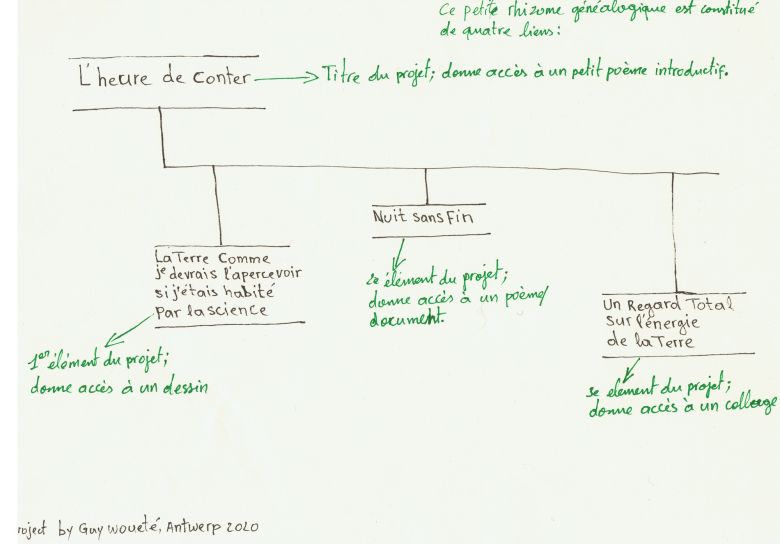 Ce petite rhizome généalogique est constitué
de quatre liens:
L'heure de conter
Titre du projet; donne accès à un petit poème introductif.
Nuit sans Fin
La Terre Comme
je devrais l'apercevoir
si j'étais habité
Par la science
2e élément du projet;
donne accès à un poème/
document.
Un Regard Total
sur l'énergie
de la Terre
1er élément du projet;
donne accès à un dessin
3e element du projet;
donne accès à un collage
roject by Guy Woueté, Antwerp 2020